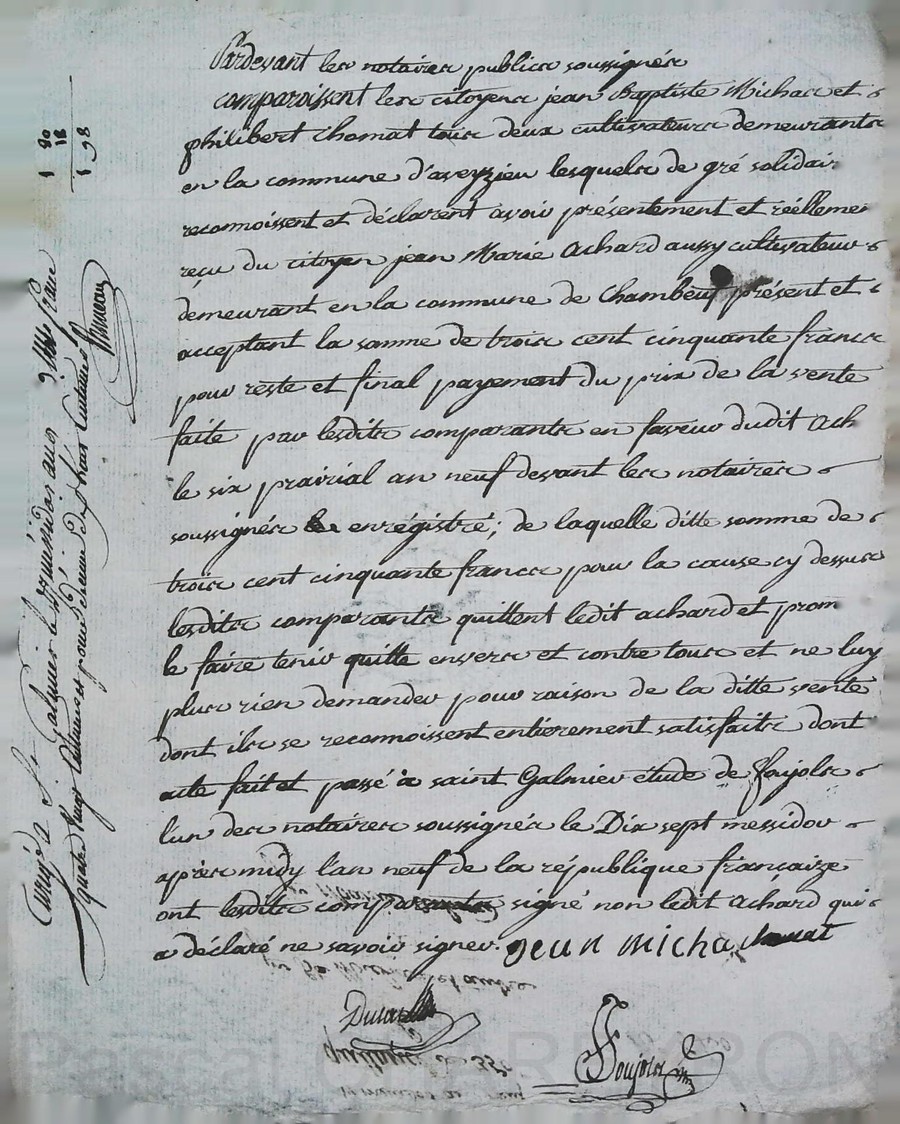 Pardevant les notaires publics soussignés
comparoissent les citoyens jean Baptiste Michas et
philibert Thomat tous deux cultivateurs demeurants
en la commune d'aveyzieu lesquels de gré solidair
reconnoissent et déclarent avoir présentement et réellemen
reçu du citoyen jean Marie Achard aussy cultivateur
demeurant en la commune de Chambeuf présent et
acceptant la somme de trois cent cinquante francs
pour reste et final payement du prix de la vente
faite par lesdits comparants en faveur dudit Ach
le six prairial an neuf devant les notaires
soussignés enrégistré; de laquelle ditte somme de
trois cent cinquante francs pour la cause cy dessus
lesdits comparants quittent ledit achard et prom
le faire tenir quitte envers et contre tous et ne luy
plus rien demander pour raison de la ditte vente
dont ils se reconnoissent entièrement satisfaits dont
acte fait et passé à saint Galmier étude de foujols
l'un des notaires soussignés le Dix sept messidor
après midy l'an neuf de la république française
ont lesdits comparants signé non ledit Achard qui
a déclaré ne savoir signer. jean micha thomat
Foujols
Enregé à St Galmier le messidor an 9 franc
quatre vingt centimes pour dixieme dix huit centimes
1 80
18
1 98